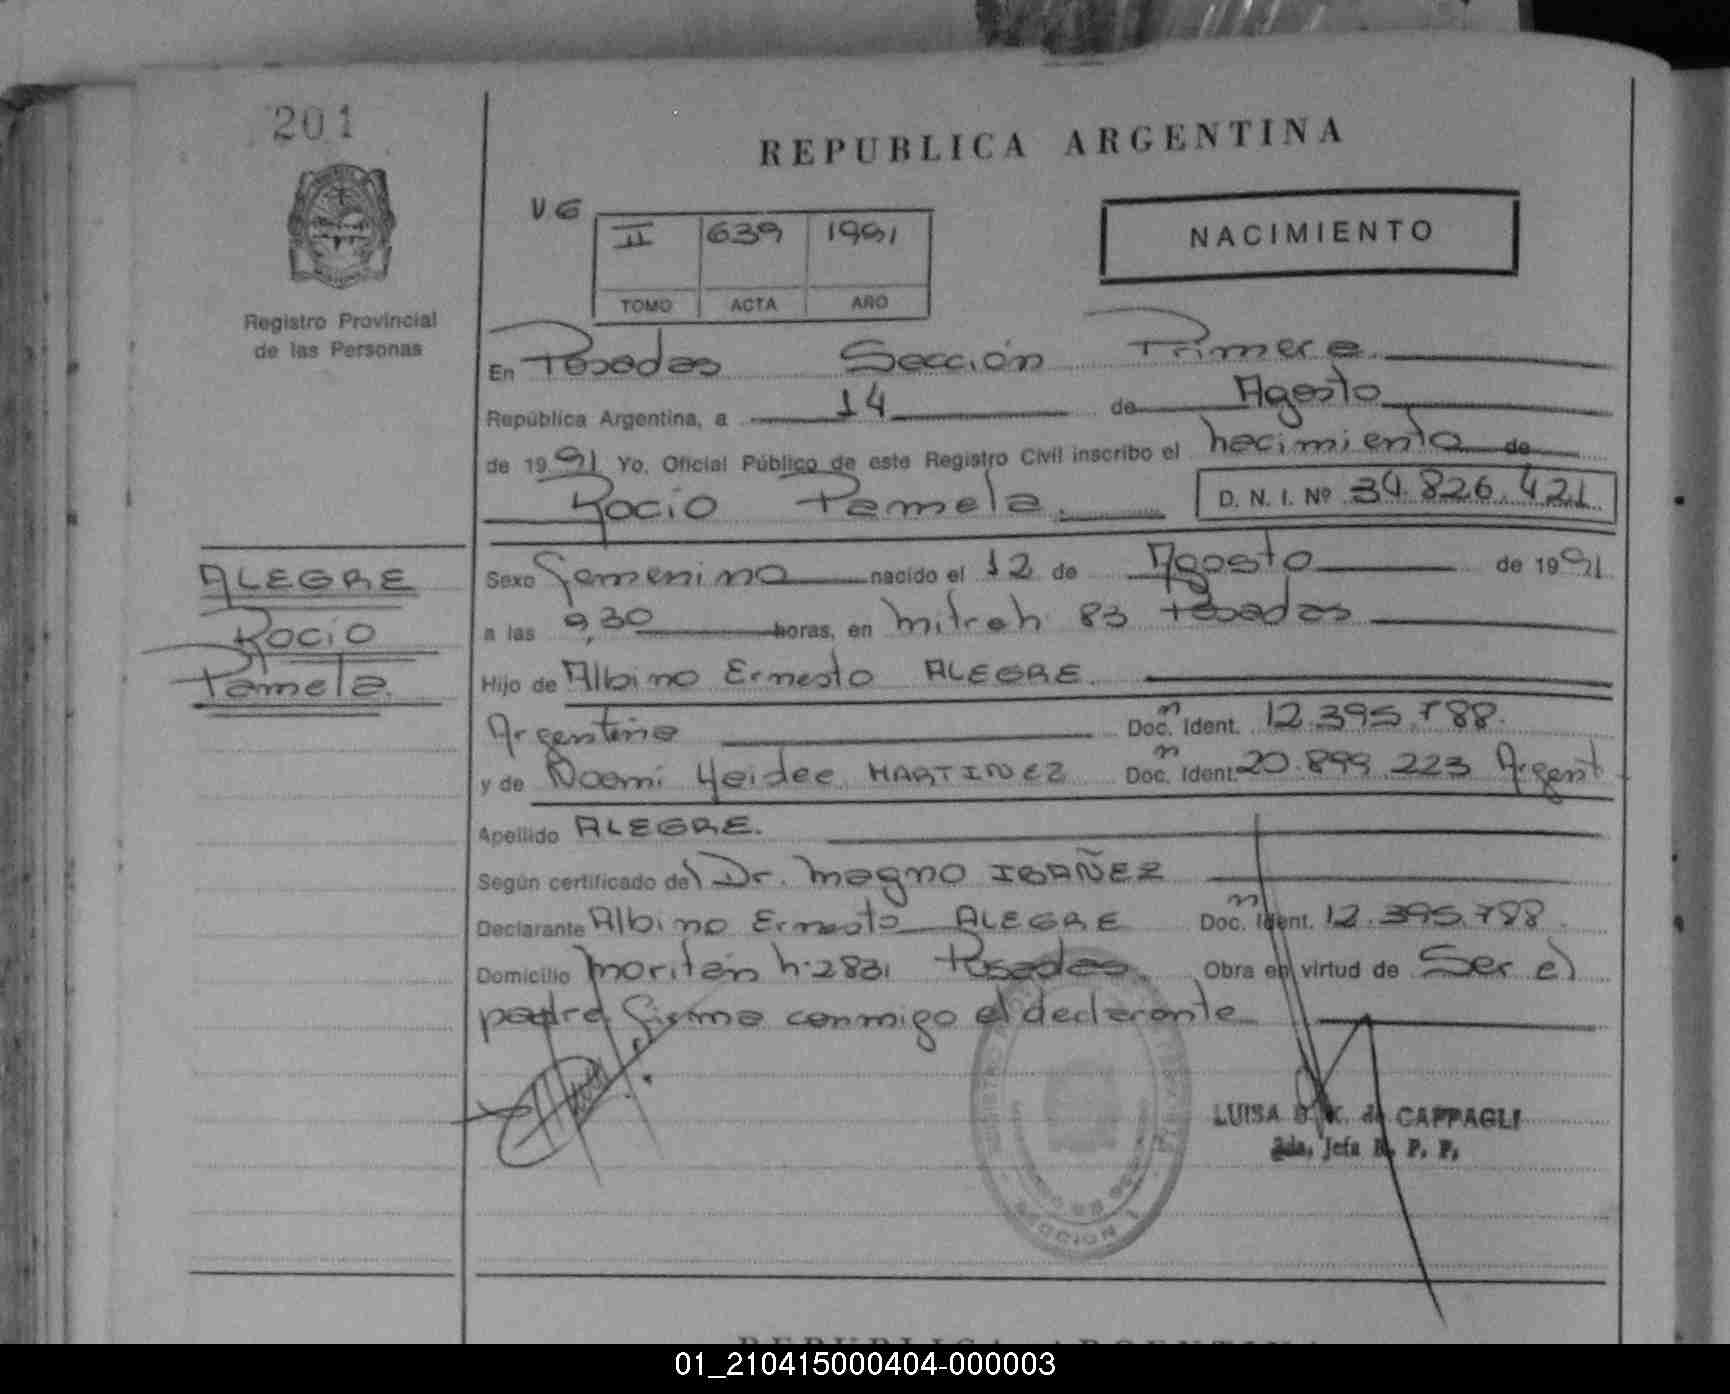 201
REPUBLICA ARGENTINA
V6
II 639 1991
TOMO ACTA AÑO
NACIMIENTO
Registro Provincial
de las Personas
En Posadas Sección Primera
República Argentina, a 14 de Agosto
de 1991 Yo, Oficial Público de este Registro Civil inscribo el nacimiento de
Rocio Pamela. D. N. I. Nº 34.826.421
ALEGRE
Rocio
Pamela.
Sexo Femenino nacido el 12 de Agosto de 1991
a las 9,30 horas, en Mitre n: 83 Posadas
Hijo de Albino Ernesto ALEGRE.
Argentino Doc. Ident. 12.395.788.
y de Noemi Heidee MARTINEZ Doc. Ident. 20.899.223 Argent
Apellido ALEGRE.
Según certificado del Dr. Magno IBAÑEZ
Declarante Albino Ernesto ALEGRE Doc. Ident. 12.395.788.
Domicilio Posadas Obra en virtud de Ser el
padre. Firma conmigo el declarante
LUISA K. de CAPPAGLI
2da. Jefa R. P. P.
SECCION 1
01_210415000404-000003